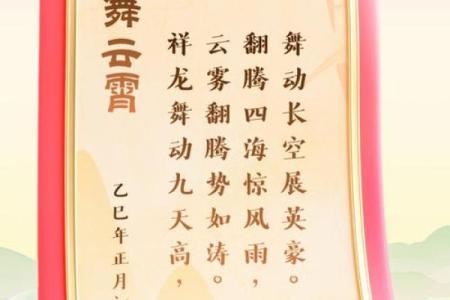 舞云霄
祥龙舞动九天高,
云雾翻腾势如涛。
翻腾四海惊风雨,
舞动长空展英豪。
乙巳年正月